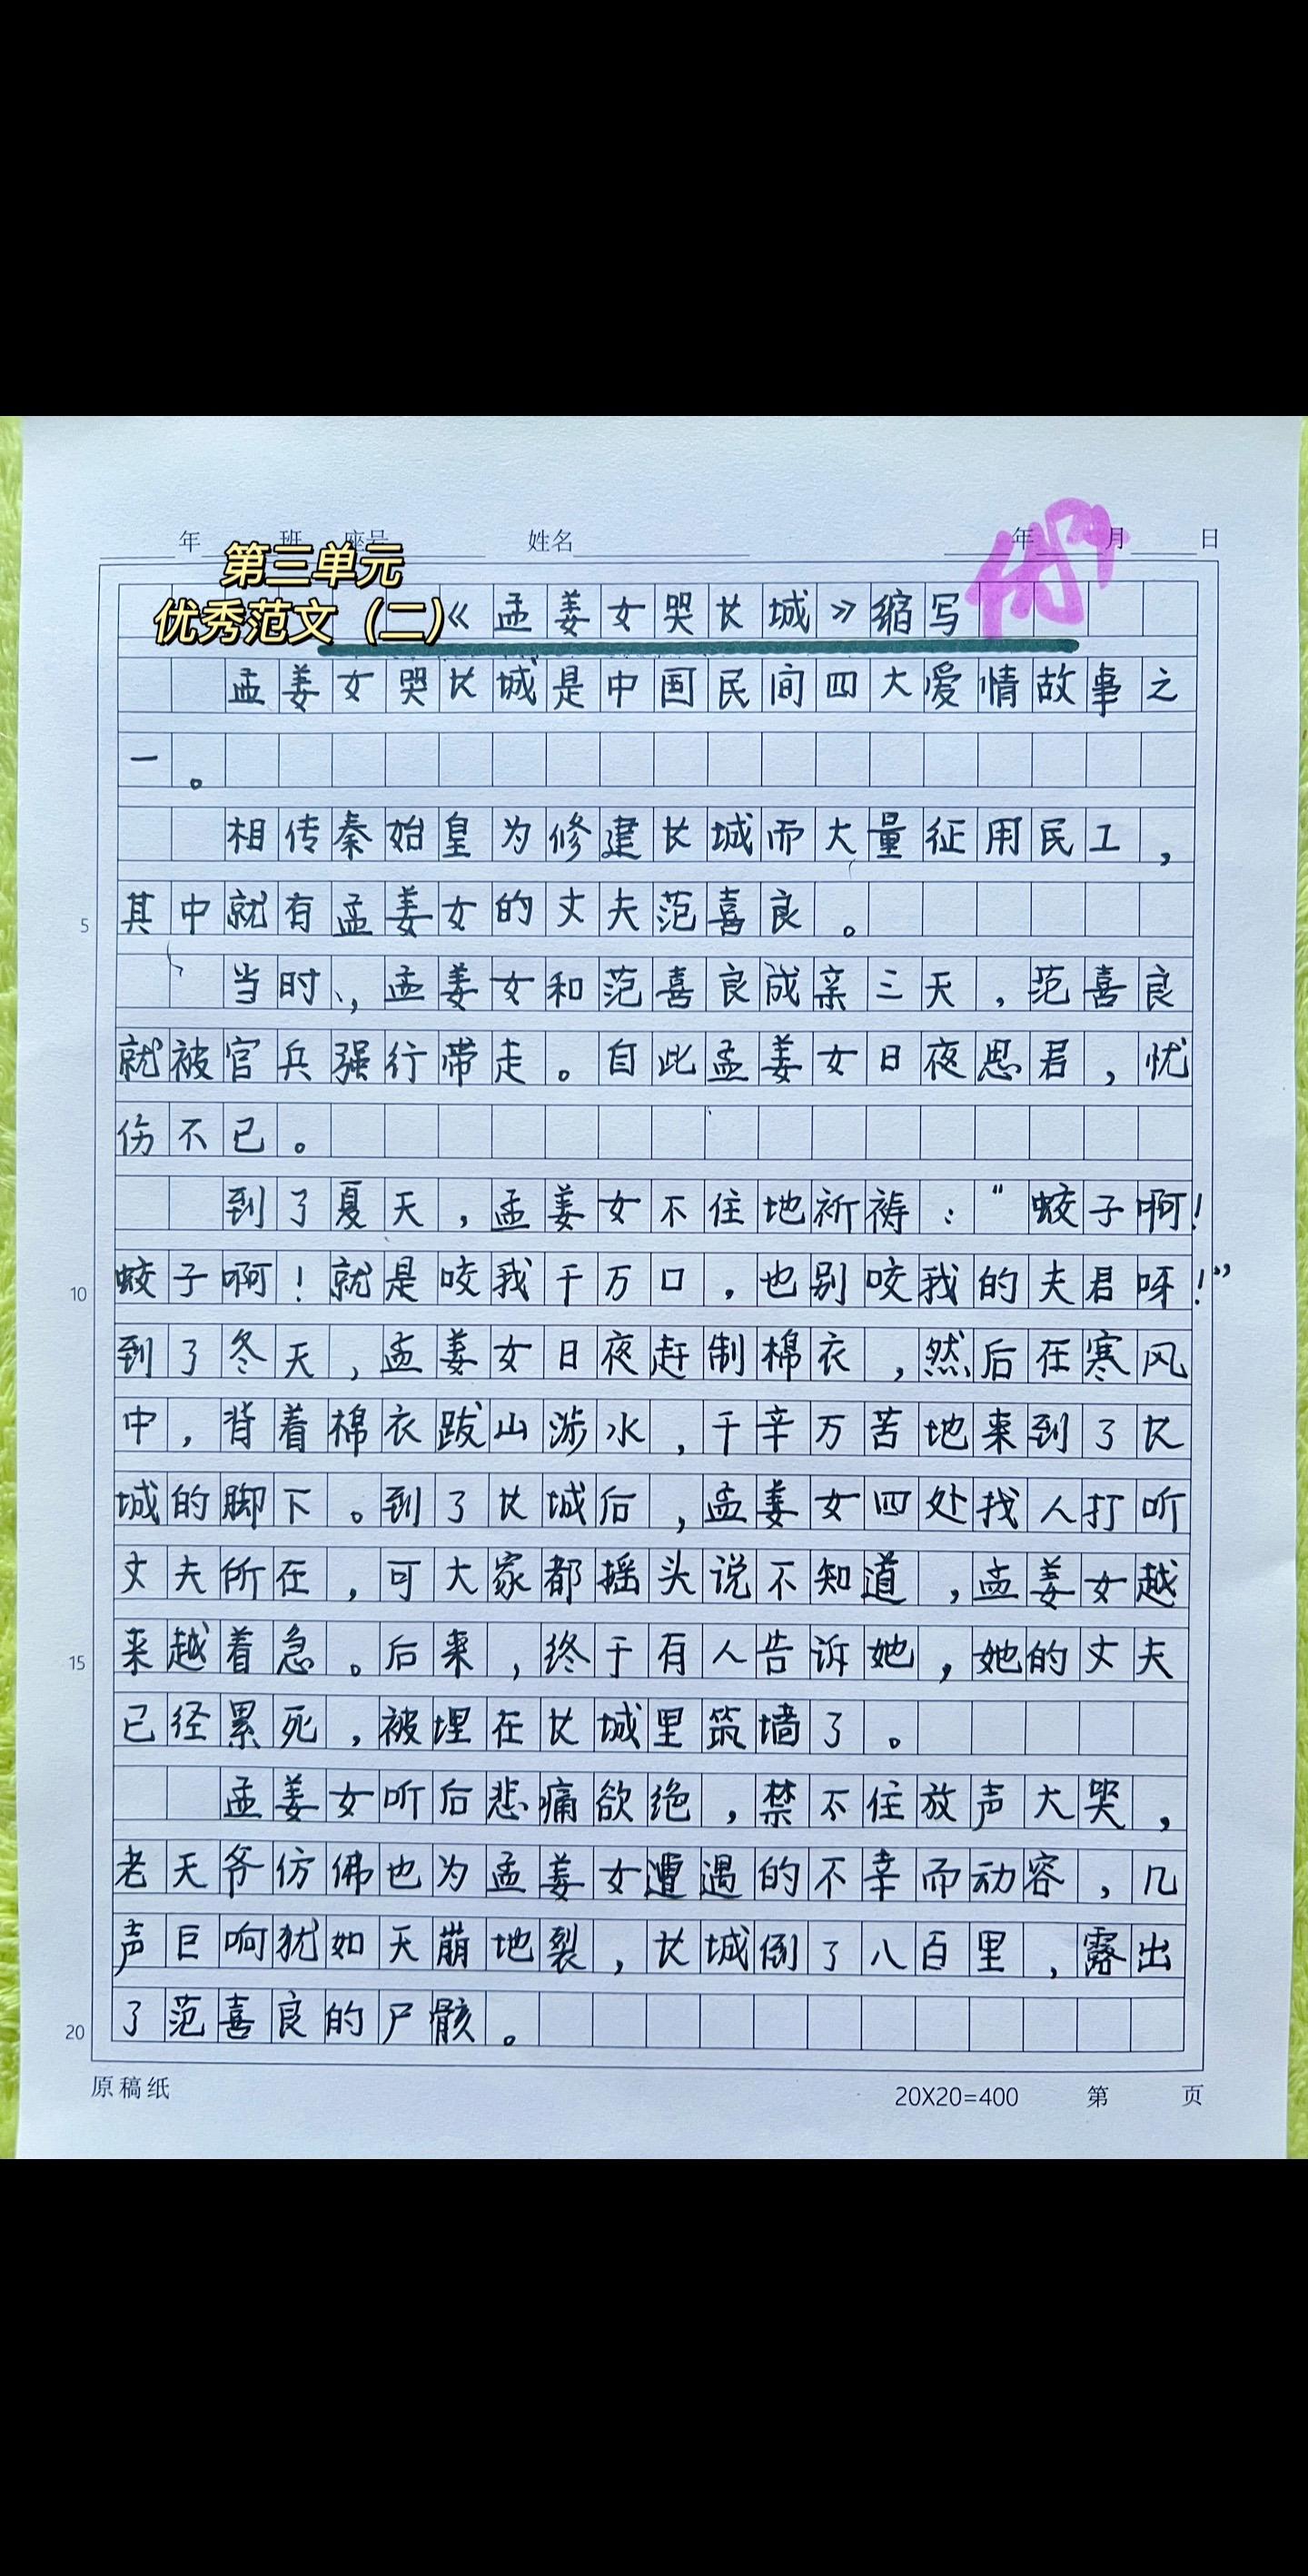 年 班 座号 姓名 年 月 日
第三单元
优秀范文（二）
《孟姜女哭长城》缩写
孟姜女哭长城是中国民间四大爱情故事之
一。
相传秦始皇为修建长城而大量征用民工，
5 其中就有孟姜女的丈夫范喜良。
当时，孟姜女和范喜良成亲三天，范喜良
就被官兵强行带走。自此孟姜女日夜思君，忧
伤不已。
到了夏天，孟姜女不住地祈祷：“蛟子啊！
10 蛟子啊！就是咬我千万口，也别咬我的夫君呀！”
到了冬天，孟姜女日夜赶制棉衣，然后在寒风
中，背着棉衣跋山涉水，千辛万苦地来到了长
城的脚下。到了长城后，孟姜女四处找人打听
丈夫所在，可大家都摇头说不知道，孟姜女越
15 来越着急。后来，终于有人告诉她，她的丈夫
已经累死，被埋在长城里筑墙了。
孟姜女听后悲痛欲绝，禁不住放声大哭，
老天爷仿佛也为孟姜女遭遇的不幸而动容，几
声巨响犹如天崩地裂，长城倒了八百里，露出
20 了范喜良的尸骸。
原稿纸 20X20=400 第 页